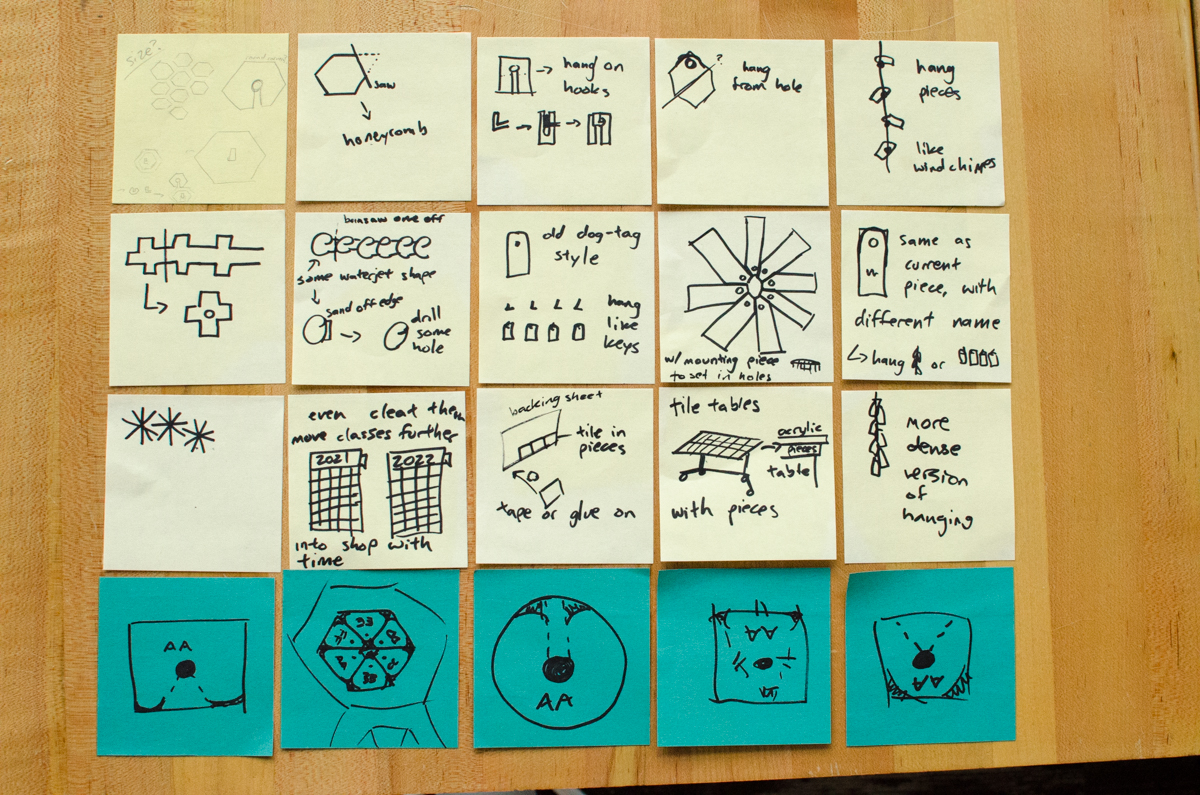 size?
saw
honeycomb
hang on
hooks
?
hang
from hole
hang
pieces
like
windchimes
bansaw one off
same waterjet shape
sand off edge
drill
some
hole
old dog-tag
style
hang
like
keys
w/ mounting piece
to set in holes
same as
current
piece, with
different name
hang
or
even cleat them
move classes further
2021
2022
into shop with
time
backing sheet
tile in
pieces
tape or glue on
tile tables
acrylic
pieces
table
with pieces
more
dense
version
of
hanging
AA
AA
AA
AA